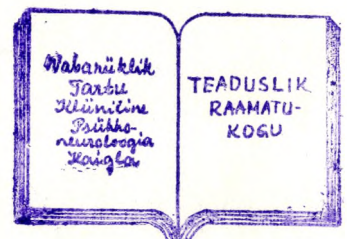 Vabariiklik
Tartu
Kliiniline
Psühho-
neuroloogia
Haigla
TEADUSLIK
RAAMATU-
KOGU